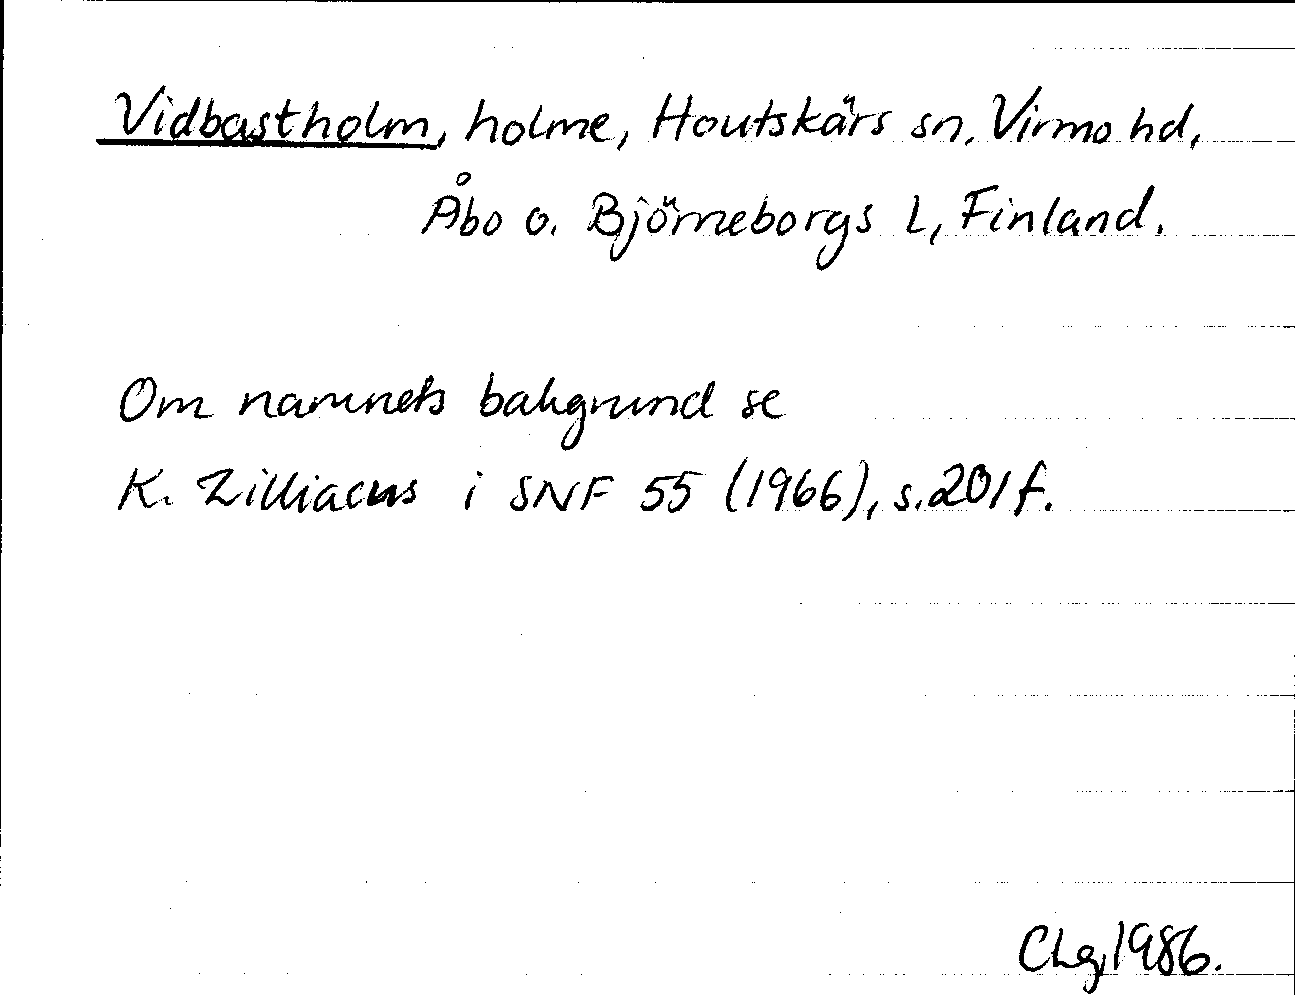 Vidbastholm, holme, Houtskärs sn, Virmo hd,
Åbo o. Björneborgs L, Finland.
Om namnets bakgrund se
K. Zilliacus i SNF 55 (1966), s. 201 f.
CLg 1986.